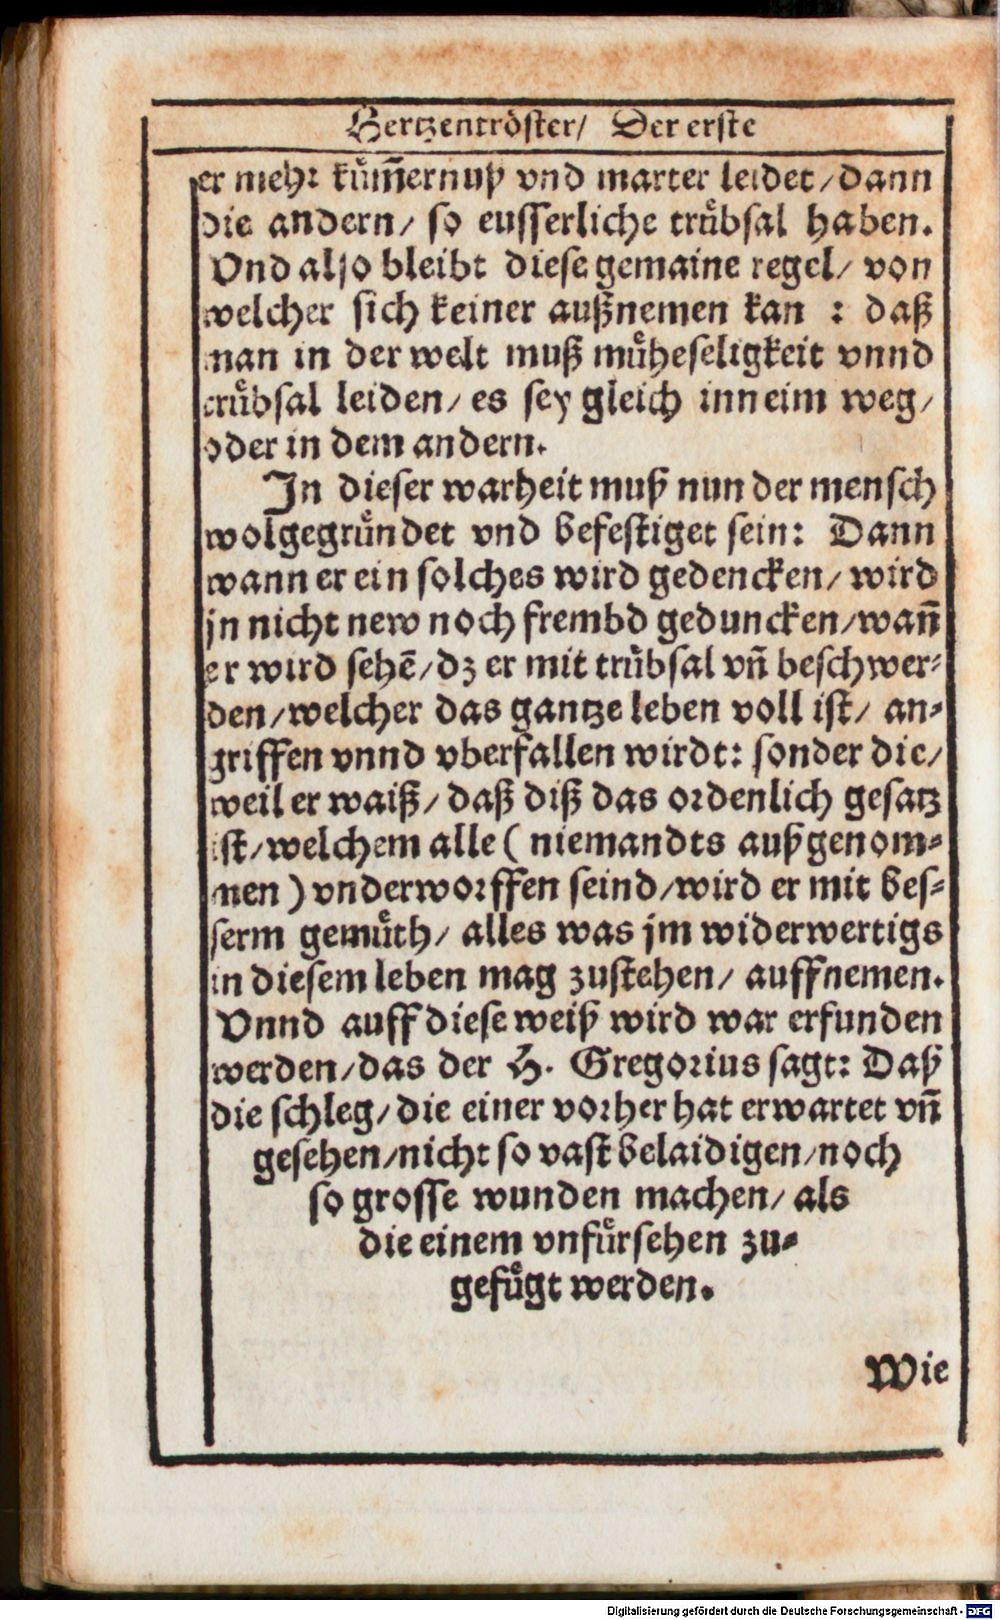 Hertzentröster/ Der erste
er mehr kům̃ernuß vnd marter leidet/dann
die andern/ so eusserliche trůbsal haben.
Vnd also bleibt diese gemaine regel/ von
welcher sich keiner außnemen kan : daß
man in der welt muß můheseligkeit vnnd
trůbsal leiden/ es sey gleich inn eim weg/
oder in dem andern.
In dieser warheit muß nun der mensch
wolgegrůndet vnd befestiget sein: Dann
wann er ein solches wird gedencken/ wird
jn nicht new noch frembd geduncken/wañ
er wird sehẽ/dz er mit trůbsal vñ beschwer-
den/welcher das gantze leben voll ist/ an-
griffen vnnd vberfallen wirdt: sonder die/
weil er waiß/ daß diß das ordenlich gesatz
ist/welchem alle ( niemandts außgenom-
men ) vnderworffen seind/wird er mit bes-
serm gemůth/ alles was jm widerwertigs
in diesem leben mag zustehen/ auffnemen.
Vnnd auff diese weiß wird war erfunden
werden/das der H. Gregorius sagt: Daß
die schleg/die einer vorher hat erwartet vñ
gesehen/nicht so vast belaidigen/noch
so grosse wunden machen/ als
die einem vnfůrsehen zu-
gefůgt werden.
Wie
Digitalisierung gefördert durch die Deutsche Forschungsgemeinschaft - DFG